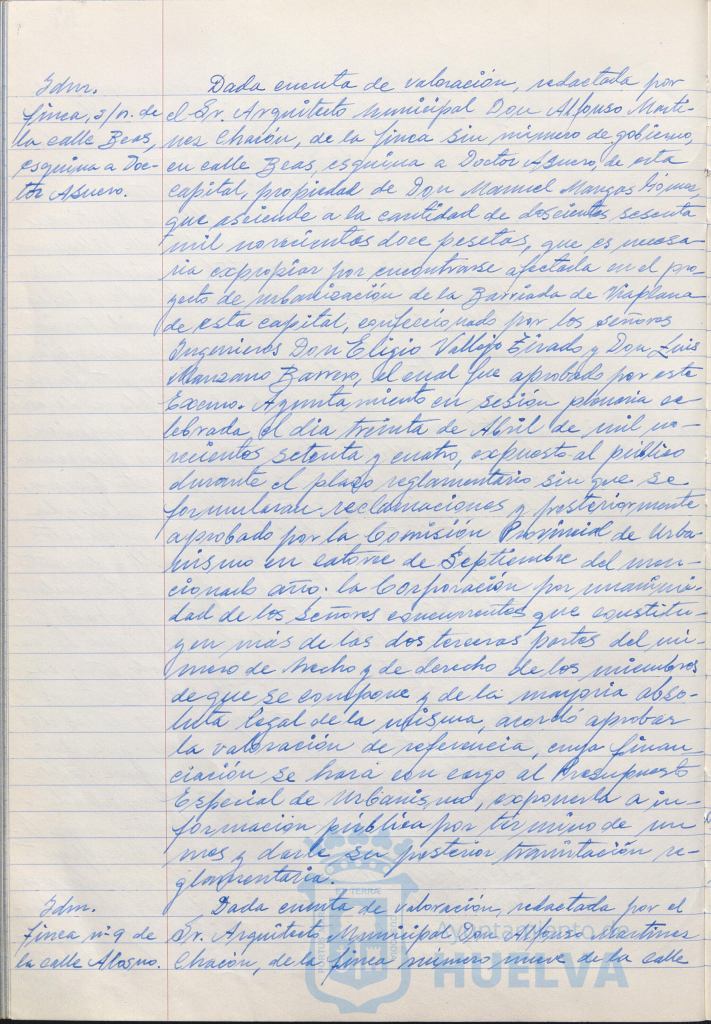 Idm.
finca, s/n. de
la calle Beas,
esquina a Doc-
tor Asuero.
Dada cuenta de valoración, redactada por
el Sr. Arquitecto Municipal Don Alfonso Martí-
nez Chacón, de la finca sin número de gobierno,
en calle Beas, esquina a Doctor Asuero, de esta
capital, propiedad de Don Manuel Mangas Gómez,
que asciende a la cantidad de doscientas sesenta
mil novecientas doce pesetas, que es necesa-
ria expropiar por encontrarse afectada en el pro-
yecto de urbanización de la Barriada de Viaplana
de esta capital, confeccionado por los señores
Ingenieros Don Eligio Vallejo Tirado y Don Luis
Manzano Barrero, el cual fue aprobado por este
Excmo. Ayuntamiento en sesión plenaria ce-
lebrada el día treinta de Abril de mil no-
vecientos setenta y cuatro, expuesto al público
durante el plazo reglamentario sin que se
formularan reclamaciones y posteriormente
aprobado por la Comisión Provincial de Urba-
nismo en catorce de Septiembre del men-
cionado año; la Corporación por unanimi-
dad de los señores concurrentes que constitu-
yen más de las dos terceras partes del nú-
mero de hecho y de derecho de los miembros
de que se compone y de la mayoría abso-
luta legal de la misma, acordó aprobar
la valoración de referencia, cuya finan-
ciación se hará con cargo al Presupuesto
Especial de Urbanismo, exponerla a in-
formación pública por término de un
mes y darle su posterior tramitación re-
glamentaria.
Idm.
finca nº 9 de
la calle Alosno.
Dada cuenta de valoración, redactada por el
Sr. Arquitecto Municipal Don Alfonso Martínez
Chacón, de la finca número nueve de la calle
Ayuntamiento de
HUELVA